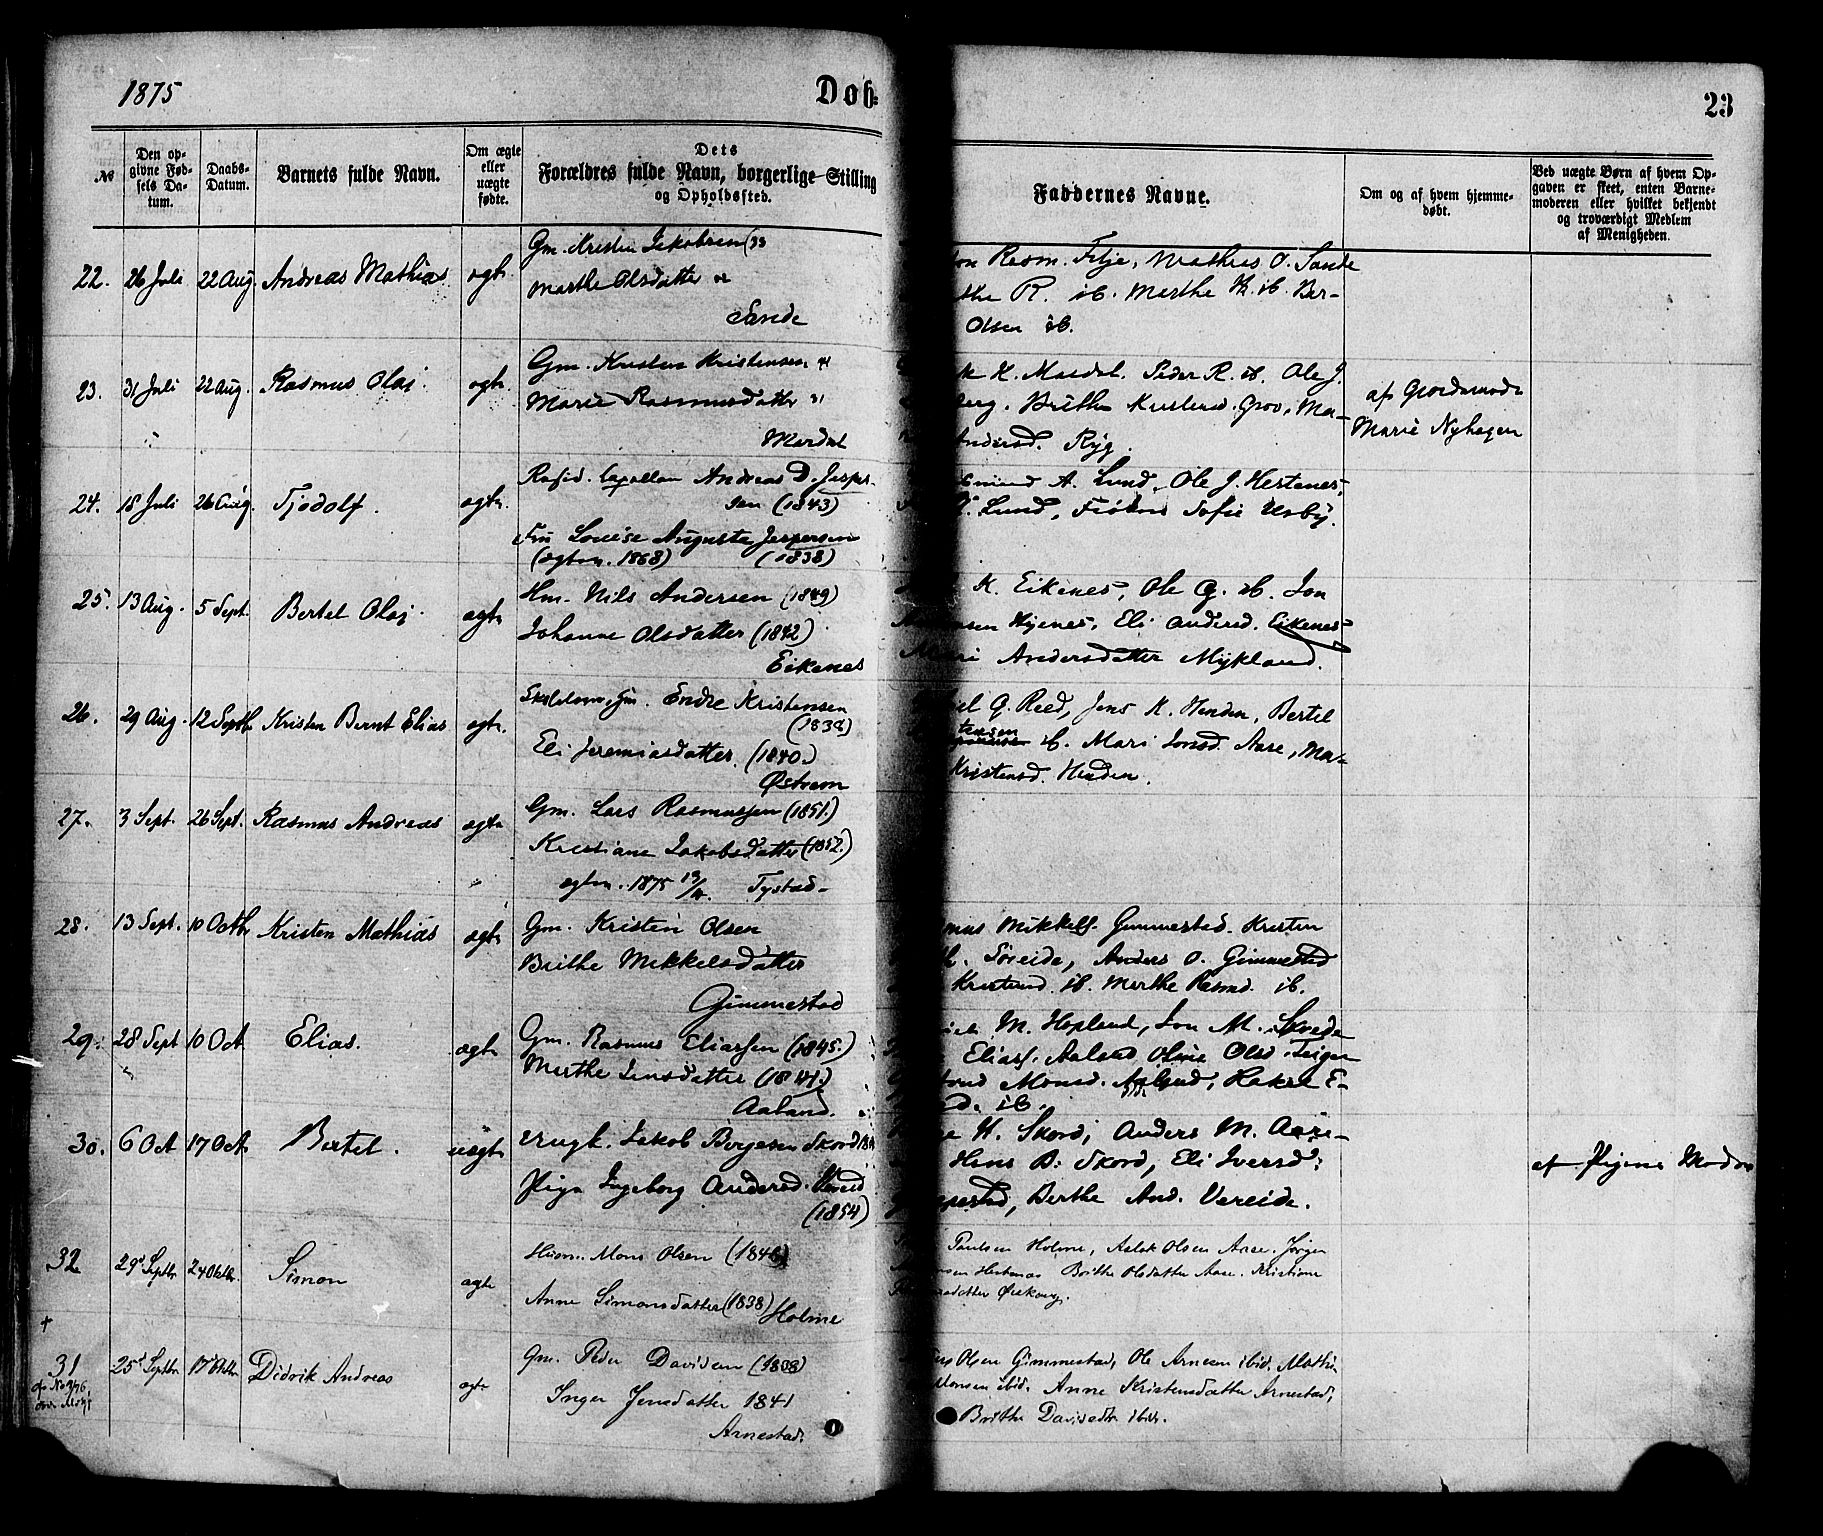 1875
Døb=
23
№
Den op-
givne Fød-
sels Da-
tum.
Daabs-
Datum.
Barnets fulde Navn.
Om ægte
eller
uægte
fødte.
Dets
Forældres fulde Navn, borgerlige Stilling
og Opholdssted.
Faddernes Navne.
Om og af hvem hjemme-
døbt.
Ved uægte Børn af hvem Op-
gaven er skeet, enten Barne-
moderen eller hvilket bekjendt
og troværdigt Medlem
af Menigheden.
22. 26 Juli 22 Aug. Andreas Mathias ægte
Gm. Kristen Jakobsen (33
Marthe Olsdatter
Sande
Rasm. Fitje, Mathies O. Sande
R. ib. Marthe K. ib. Ber-
Olsen ib.
23. 31 Juli 22 Aug. Rasmus Olai. ægte.
Gm. Kristen Kristensen 41
Marie Rasmusdatter 31
Mardal
K. Mardal. Peder R. ib. Ole J.
berg. Brithe Kristensd. Grov, Ma-
Andersd. Ryg.
af Gjordemoder
Marie Nyhagen
24. 18 Juli 26 Aug. Tjodolf. ægte.
Resid. Capellan Andreas D. Jesper-
sen (1843)
Fru Louise Augusta Jespersen
(ægtev. 1868) (1838)
A. Lund, Ole J. Hestenes,
Lund, Frøken Sofie Usby.
25. 13 Aug. 5 Sept. Bertel Olai. ægte
Hm. Nils Andersen (1849)
Johanne Olsdatter (1842)
Eikenes
K. Eikenes, Ole G. ib. Jon
Hjenes, Eli Andersd. Eikenes
Mari Andersdatter Mykland.
26. 29 Aug. 12 Septb Kristen Bernt Elias ægte.
Skolelærer, Gm. Endre Kristensen
(1838)
Eli Jeremiasdatter. (1840.)
Østrem
G. Reed, Jens K. Henden, Bertel
tensen
ib. Mari Jonsd. Aase, Ma-
Kristensd. Henden.
27. 3 Sept. 26 Sept. Rasmus Andreas ægte
Gm. Lars Rasmussen (1851.)
Kristiane Jakobsdatter (1852.)
ægtev. 1875 Tystad
28. 13 Sept. 10 Octb Kristen Mathias ægte
Gm. Kristen Olsen
Brithe Mikkelsdatter
Gimmestad
Mikkels. Gimmestad. Kristen
Søreide, Anders O. Gimmestad
Kristensd. ib. Marthe Rasmd. ib.
29. 28 Sept 10 Oct Elias. ægte
Gm. Rasmus Eliassen (1845.)
Marthe Jensdatter (1841.)
Aaland.
M. Hopland, Jon M.
Eliass. Aaland Oline Olsd. Teigen
Monsd. Aaland, Hakre E-
ib.
30. 6 Oct 17 Oct. Bertel. uægte
Ungk. Jakob Børgesen Skord
Pige Ingeborg Andersd. Vereid
(1854)
H. Skord, Anders M. Aase-
Hans B. Skord, Eli Iversd.
Berthe And. Vereide.
af Pigens Moder
32 29 Septbr 24 Oktbr. Simon ægte
Husm. Mons Olsen (1846)
Anne Simonsdatter (1838)
Holme
Paulsen Holme, Aslak Olsen Aase. Jørgen
Hestenes Brithe Olsdatter Aase. Kristiane
datter
†
31 25 Septbr 17 Oktbr Didrik Andreas ægte
Gm. Peder Davidsen (1838)
Inger Jensdatter 1841
Arnestad.
Olsen Gimmestad, Ole Arnesen ibid. Mathi
Monsen ibid. Anne Kristensdatter Arnestad,
Brithe Davidsdtr ibid.